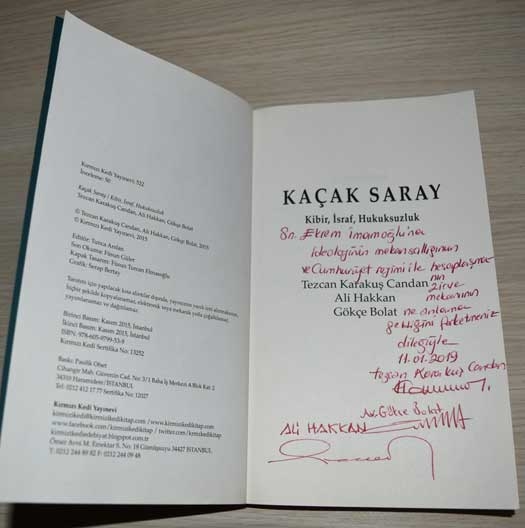 Kırmızı Kedi Yayınevi: 532
İnceleme: 50
Kaçak Saray / Kibir, İsraf, Hukuksuzluk
Tezcan Karakuş Candan, Ali Hakkan, Gökçe Bolat
© Tezcan Karakuş Candan, Ali Hakkan, Gökçe Bolat, 2015
© Kırmızı Kedi Yayınevi, 2015
Editör: Tunca Arslan
Son Okuma: Füsun Güler
Kapak Tasarım: Füsun Turcan Elmasoğlu
Grafik: Serap Bertay
Tanıtım için yapılacak kısa alıntılar dışında, yayıncının yazılı izni alınmaksızın,
hiçbir şekilde kopyalanamaz, elektronik veya mekanik yolla çoğaltılamaz,
yayımlanamaz ve dağıtılamaz.
Birinci Basım: Kasım 2015, İstanbul
İkinci Basım: Kasım 2015, İstanbul
ISBN: 978-605-9799-53-9
Kırmızı Kedi Sertifika No: 13252
Baskı: Pasifik Ofset
Cihangir Mah. Güvercin Cad. No: 3/1 Baha İş Merkezi A Blok Kat: 2
34310 Haramidere/İSTANBUL
T: 0212 412 17 77 Sertifika No: 12027
Kırmızı Kedi Yayınevi
kirmizikedi@kirmizikedikitap.com / www.kirmizikedikitap.com
www.facebook.com/kirmizikedikitap / twitter.com/krmzkedikitap
kirmizikediedebiyat.blogspot.com.tr
Ömer Avni M. Emektar S. No: 18 Gümüşsuyu 34427 İSTANBUL
T: 0212 244 89 82 F: 0212 244 09 48
KAÇAK SARAY
Kibir, İsraf, Hukuksuzluk
Sn. Ekrem İmamoğlu'na
ideolojinin mekansallığının
ve Cumhuriyet rejimi ile hesaplaşma
nın
Tezcan Karakuş Candan
zirve
Ali Hakkan
mekanının
Gökçe Bolat
ne anlama
geldiğini
dileğiyle
11.01.2019
Tezcan Karakuş Candan
Av. Gökçe Bolat
ALİ HAKKAN